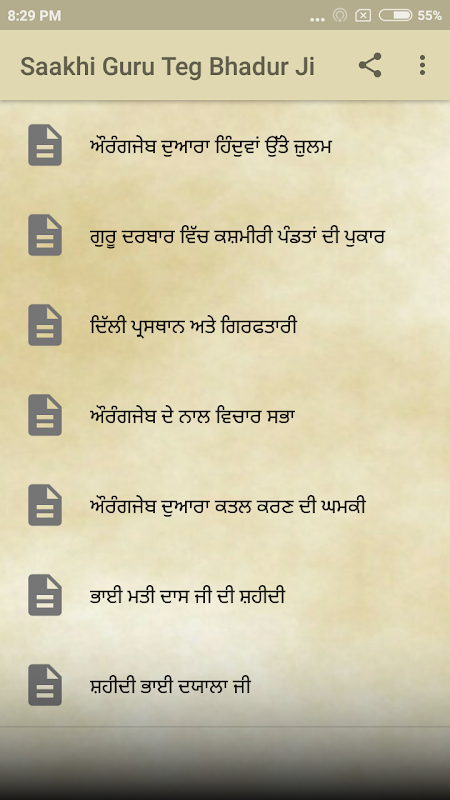 8:29 PM
55%
Saakhi Guru Teg Bhadur Ji
ਔਰੰਗਜੇਬ ਦੁਆਰਾ ਹਿੰਦੁਵਾਂ ਉੱਤੇ ਜ਼ੁਲਮ
ਗੁਰੂ ਦਰਬਾਰ ਵਿੱਚ ਕਸ਼ਮੀਰੀ ਪੰਡਤਾਂ ਦੀ ਪੁਕਾਰ
ਦਿੱਲੀ ਪ੍ਰਸਥਾਨ ਅਤੇ ਗਿਰਫਤਾਰੀ
ਔਰੰਗਜੇਬ ਦੇ ਨਾਲ ਵਿਚਾਰ ਸਭਾ
ਔਰੰਗਜੇਬ ਦੁਆਰਾ ਕਤਲ ਕਰਣ ਦੀ ਘਮਕੀ
ਭਾਈ ਮਤੀ ਦਾਸ ਜੀ ਦੀ ਸ਼ਹੀਦੀ
ਸ਼ਹੀਦੀ ਭਾਈ ਦਯਾਲਾ ਜੀ